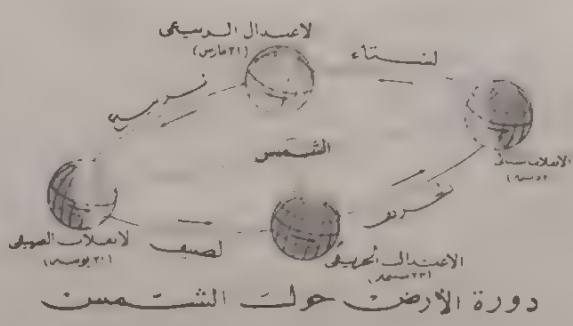 الاعتدال الربيعى
(٢١ مارس)
الشتاء
الربيع
الشمس
الانقلاب الشتوى
الخريف
الانقلاب الصيفى
(٢١ يونيه)
الصيف
الاعتدال الخريفى
(٢٣ سبتمبر)
دورة الأرض حول الشمس